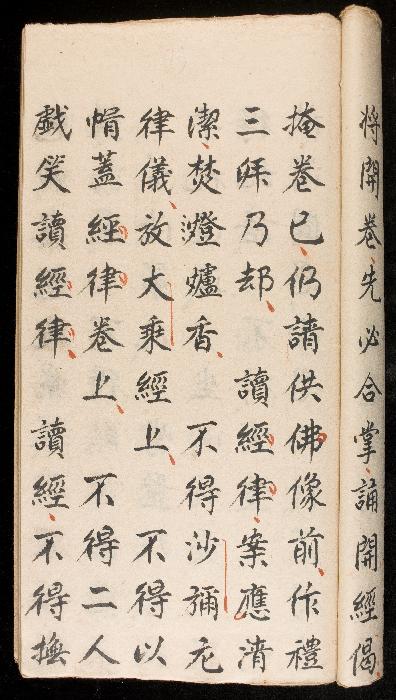 將開卷先必合掌誦開經偈
掩卷已仍請供佛像前作禮
三拜乃却 讀經律案應清
潔焚燈爐香 不得沙彌尼
律儀放大乘經上 不得以
帽蓋經律卷上 不得二人
戲笑讀經律 讀經不得撫